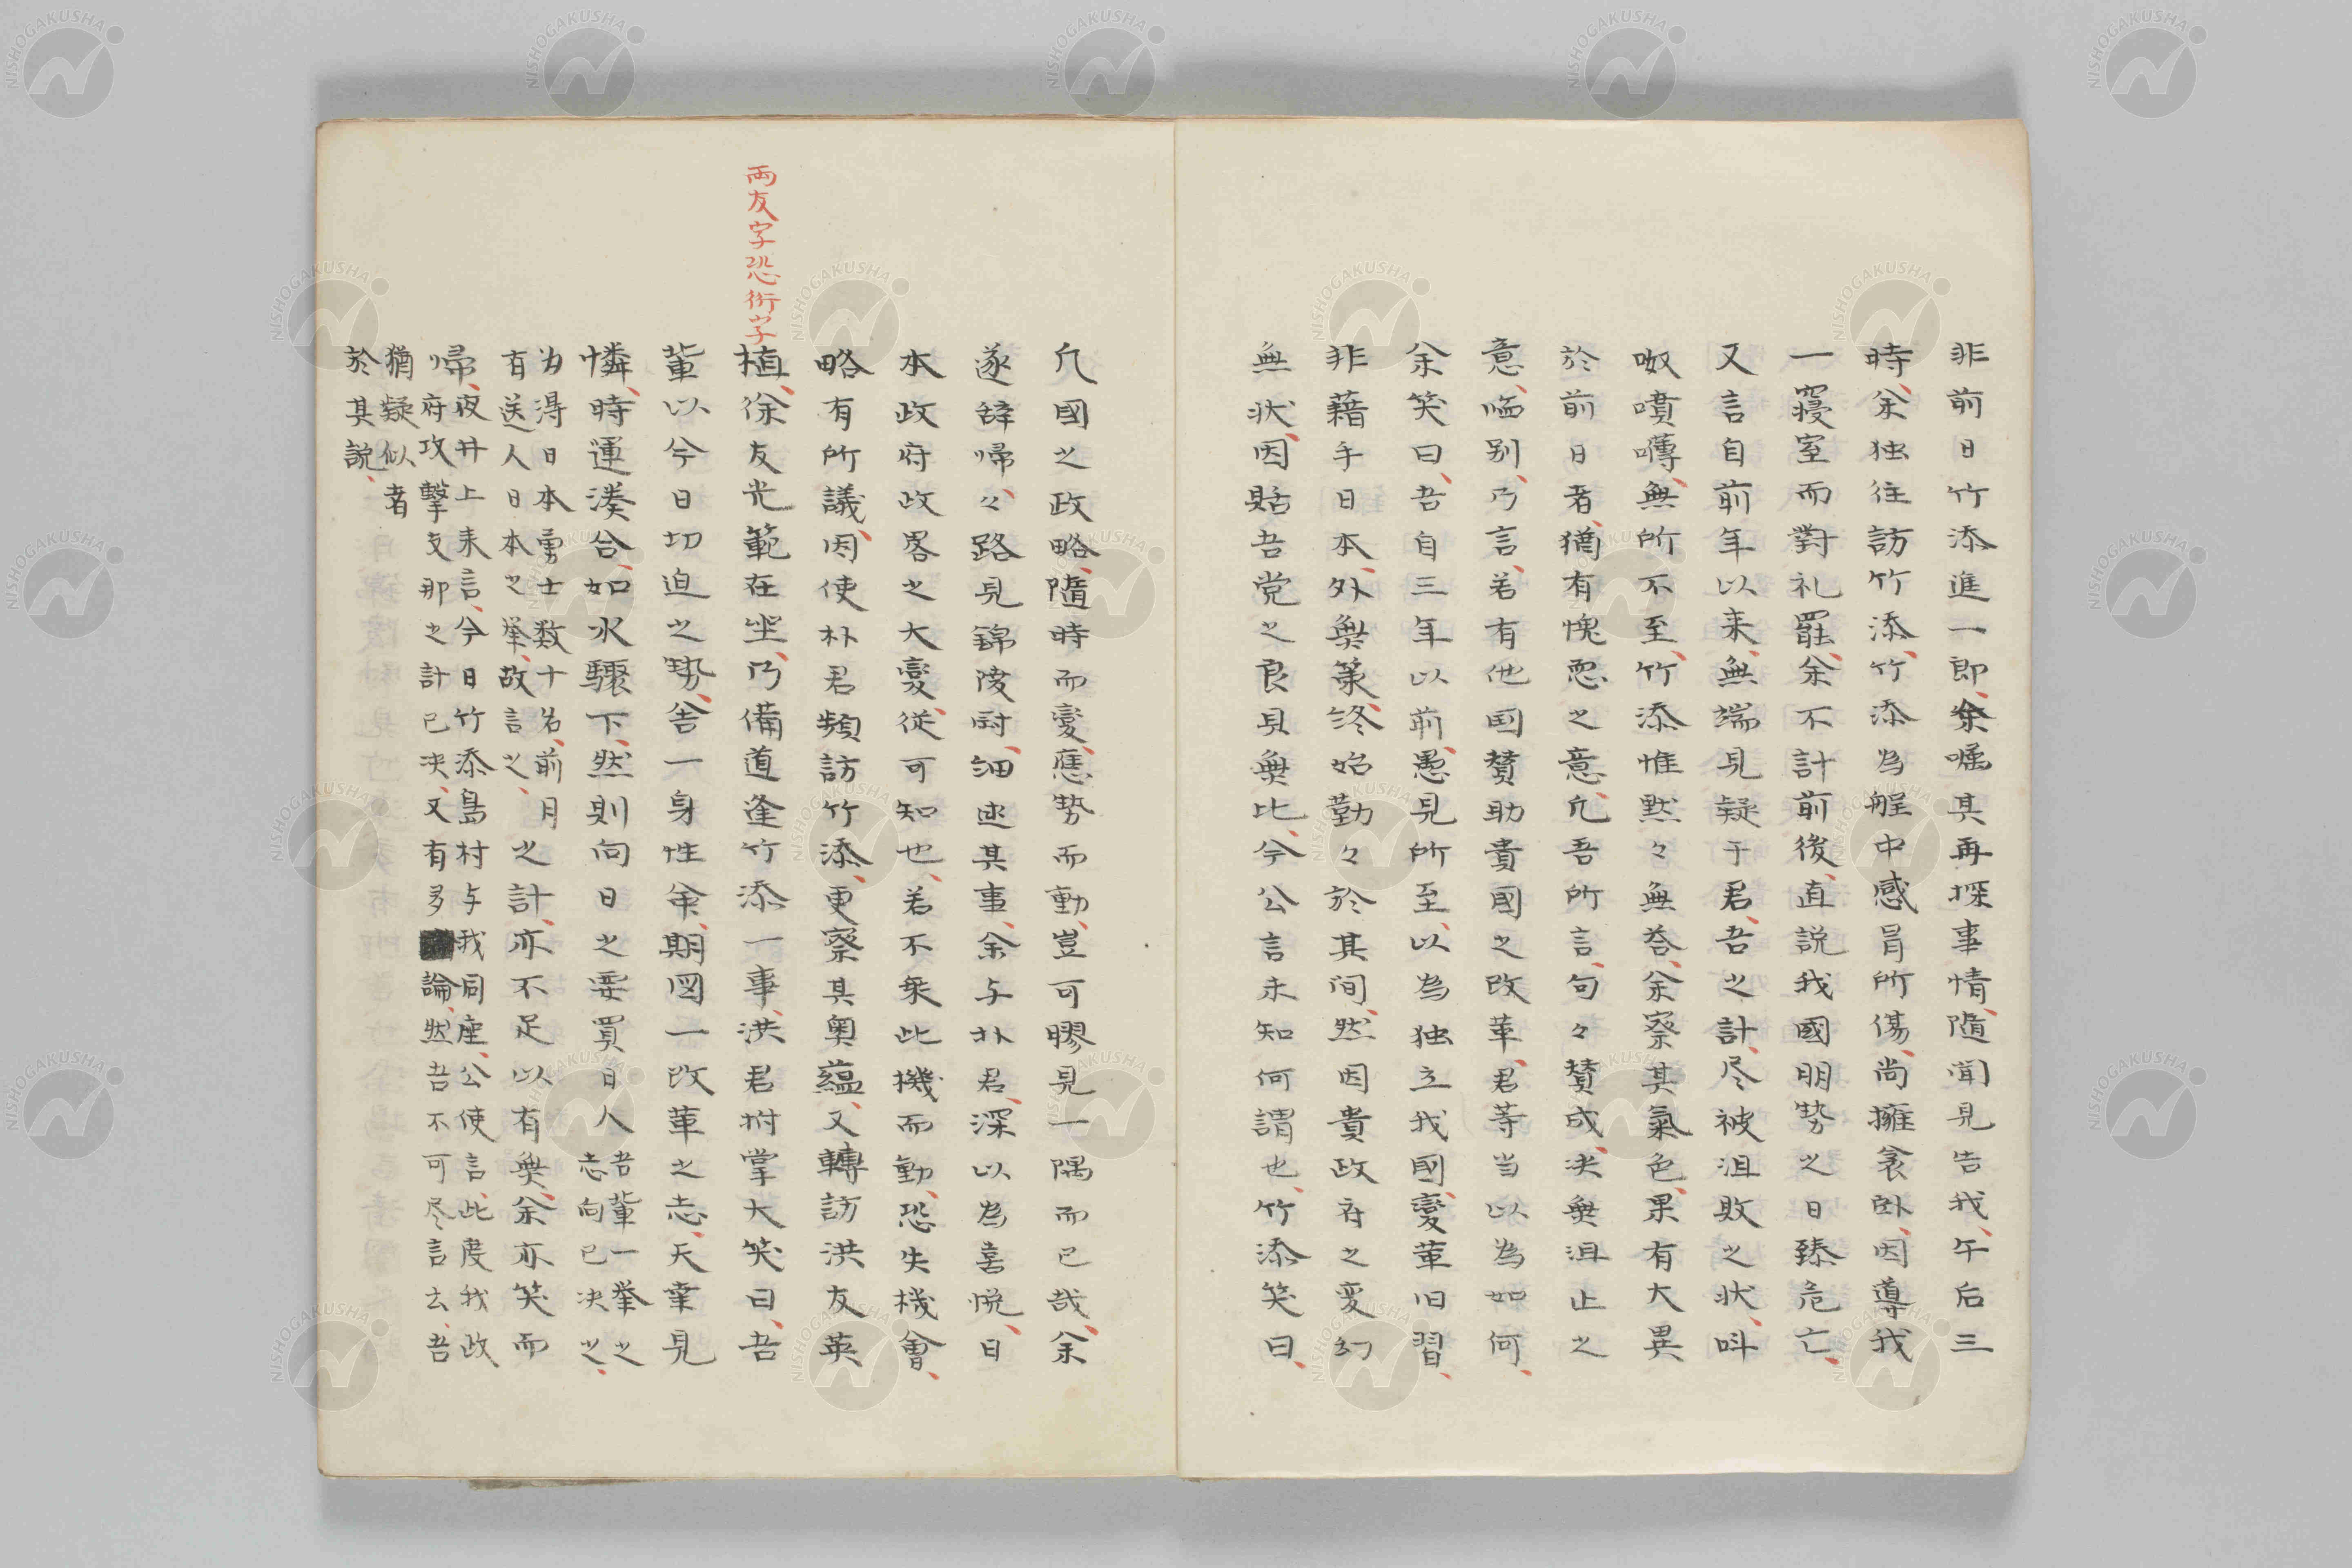 非前日竹添進一即、余嘱其再探事情、随聞見告我、午后三
時、余独往訪竹添、竹添為程中感冒所傷、尚擁衾臥、因導我
一寝室而對礼罷、余不計前後、直説我國明勢之日臻危亡、
又言自前年以来、無端見疑于君、吾之計、尽被沮敗之状、叫
嗷噴嚊、無所不至、竹添惟黙々無答、余察其氣色、果有大異
於前日者、猶有愧恧之意、凢吾所言、句々賛成、决無沮止之
意、臨别、乃言、若有他国賛助貴國之改革、君等当以為如何、
余笑曰、吾自三年以前、愚見所至、以為独立我國、變革旧習、
非藉手日本、外無策、終始勤々於其间、然因貴政府之変幻
無状、因貽吾党之良具無比、今公言未知何謂也、竹添笑曰、
凢國之政略、隨時而變、應勢而動、豈可膠見一隅而已哉、余
遂辞帰々、路見錦陵尉、細述其事、余与朴君、深以為喜悦、日
本政府政畧之大變、従可知也、若不乗此機而動、恐失機會、
略有所議、因使朴君頻訪竹添、更察其奥蘊、又轉訪洪友英
植、徐友光範在坐、乃備道逢竹添一事、洪君拊掌大笑曰、吾
輩以今日切迫之勢、舎一身性命、期図一改革之志、天幸見
憐、時運湊合、如水驟下、然則向日之要買日人吾輩一挙之志向已决之、
为得日本勇士数十名、前月有送人日本之挙、故言之、之計、亦不足以有無、余亦笑而
帰、夜井上来言、今日竹添島村与我同座、公使言、此度我政府攻撃支那之計已决、又有多論、然吾不可尽言去、吾
猶疑似者於其説、
両友字恐衍字